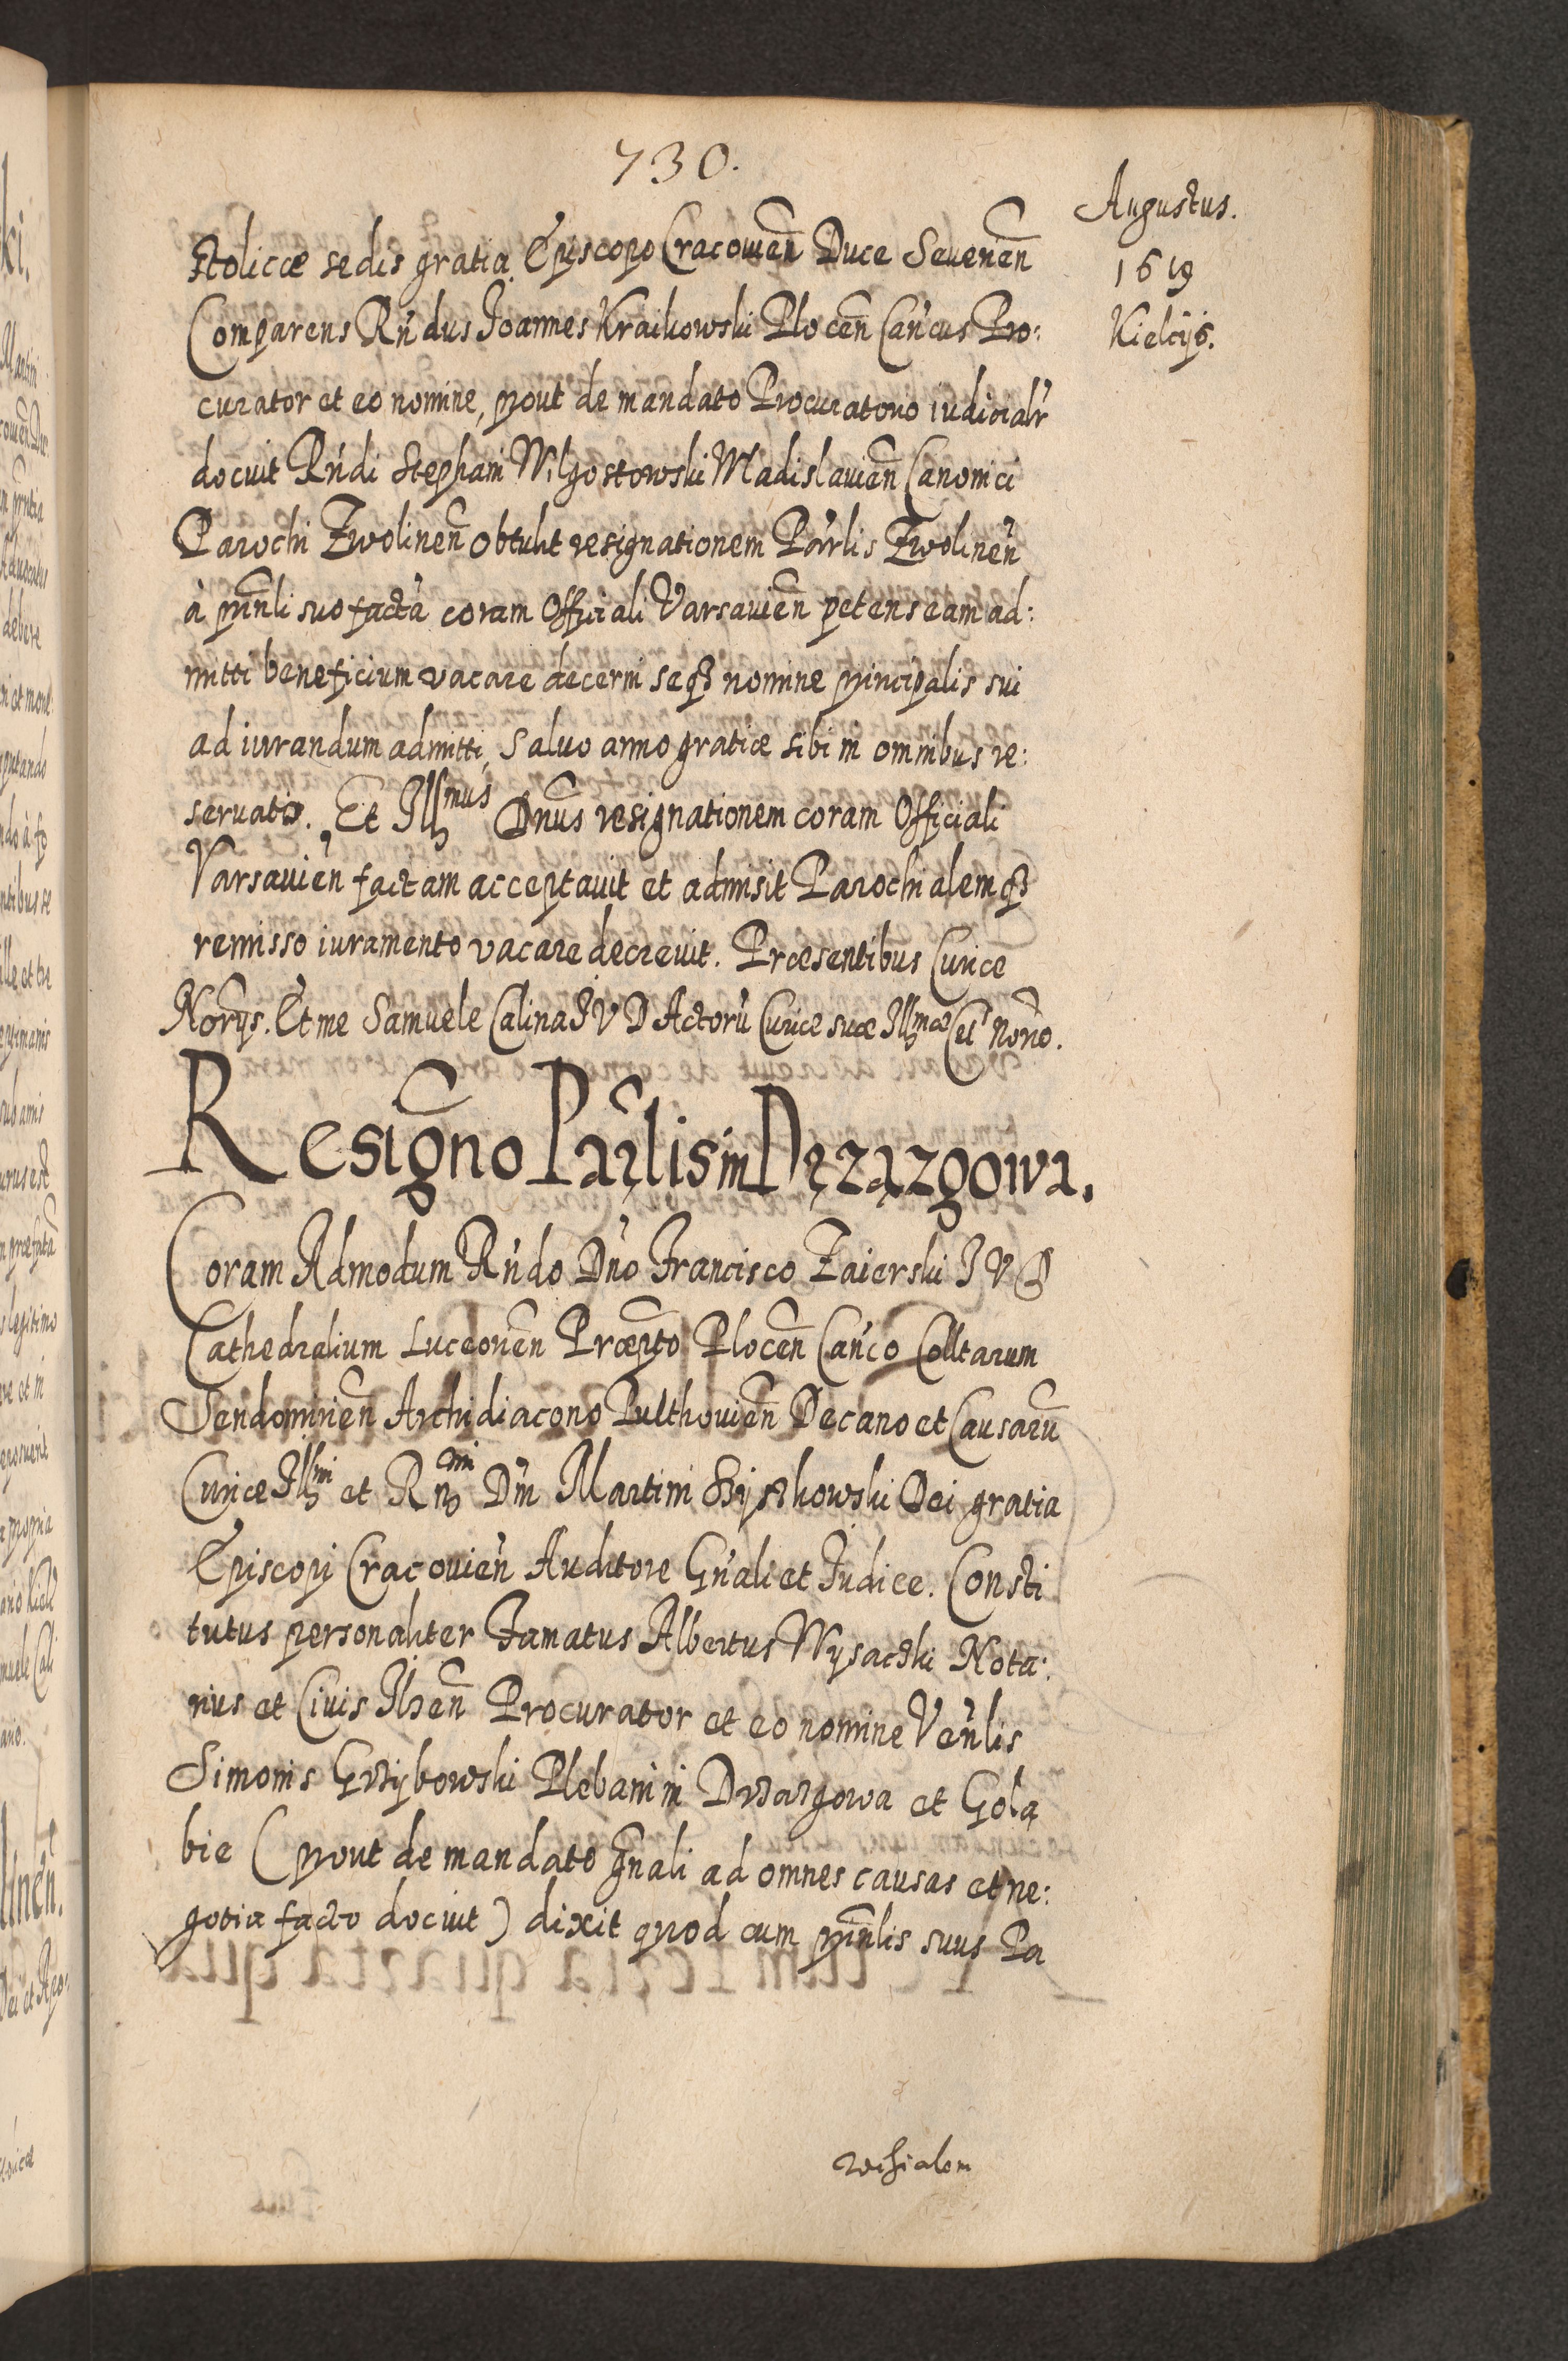 730.
Augustus.
1619
Kielcijs.
stolicæ sedis gratia Episcopo Cracouieñ Duce Seuerieñ
Comparens Rńdus Joannes Kraikowski Ploceñ Cańcus Pro:
curator et eo nomine, prout de mandato Procuratorio iudicialr
docuit Rńdi Stephani Wilgostowski Wladislauieñ Canonici
Parochi Zwolineñ obtulit resignationem Párlis Zwolineń
à prinñli suo factã coram Officiali Varsauieñ petens eam ad:
mitti beneficium vacare decerni seq3 nomine principalis sui
ad iurandum admitti, Saluo anno gratiæ sibi in omnibus re:
seruatis. Et Illmus Dñus resignationem coram Officiali
Varsauień factam acceptauit et admisit Parochialemq3
remisso iuramento vacare decreuit. Præsentibus Curiæ
Norijs. Et me Samuele Calina J V D Actorũ Curiæ suæ Illmæ Cel Norio.
Resigño Pãrlis in Drzązgowa.
Coram Admodum Rńdo Dńo Francisco Zaierski J V D
Cathedralium Luceorieñ Præpto Ploceñ Cańco Colltarum
Sendomirieñ Archidiacono Pulthouieñ Decano et Causarũ
Curiæ Illmi et Rndmi Dńi Martini Szyszkowski Dei gratia
Episcopi Cracouień Auditore Gńali et Judice. Consti
tutus personaliter Famatus Albertus Wysacski Nota:
rius et Ciuis Ilzeñ Procurator et eo nomine Veńlis
Simonis Grzybowski Plebani in Drzazgowa et Golą
bie (prout de mandato Gnali ad omnes causas et ne:
gotia facto docuit) dixit quod cum prinñlis suus Pa
rochialem